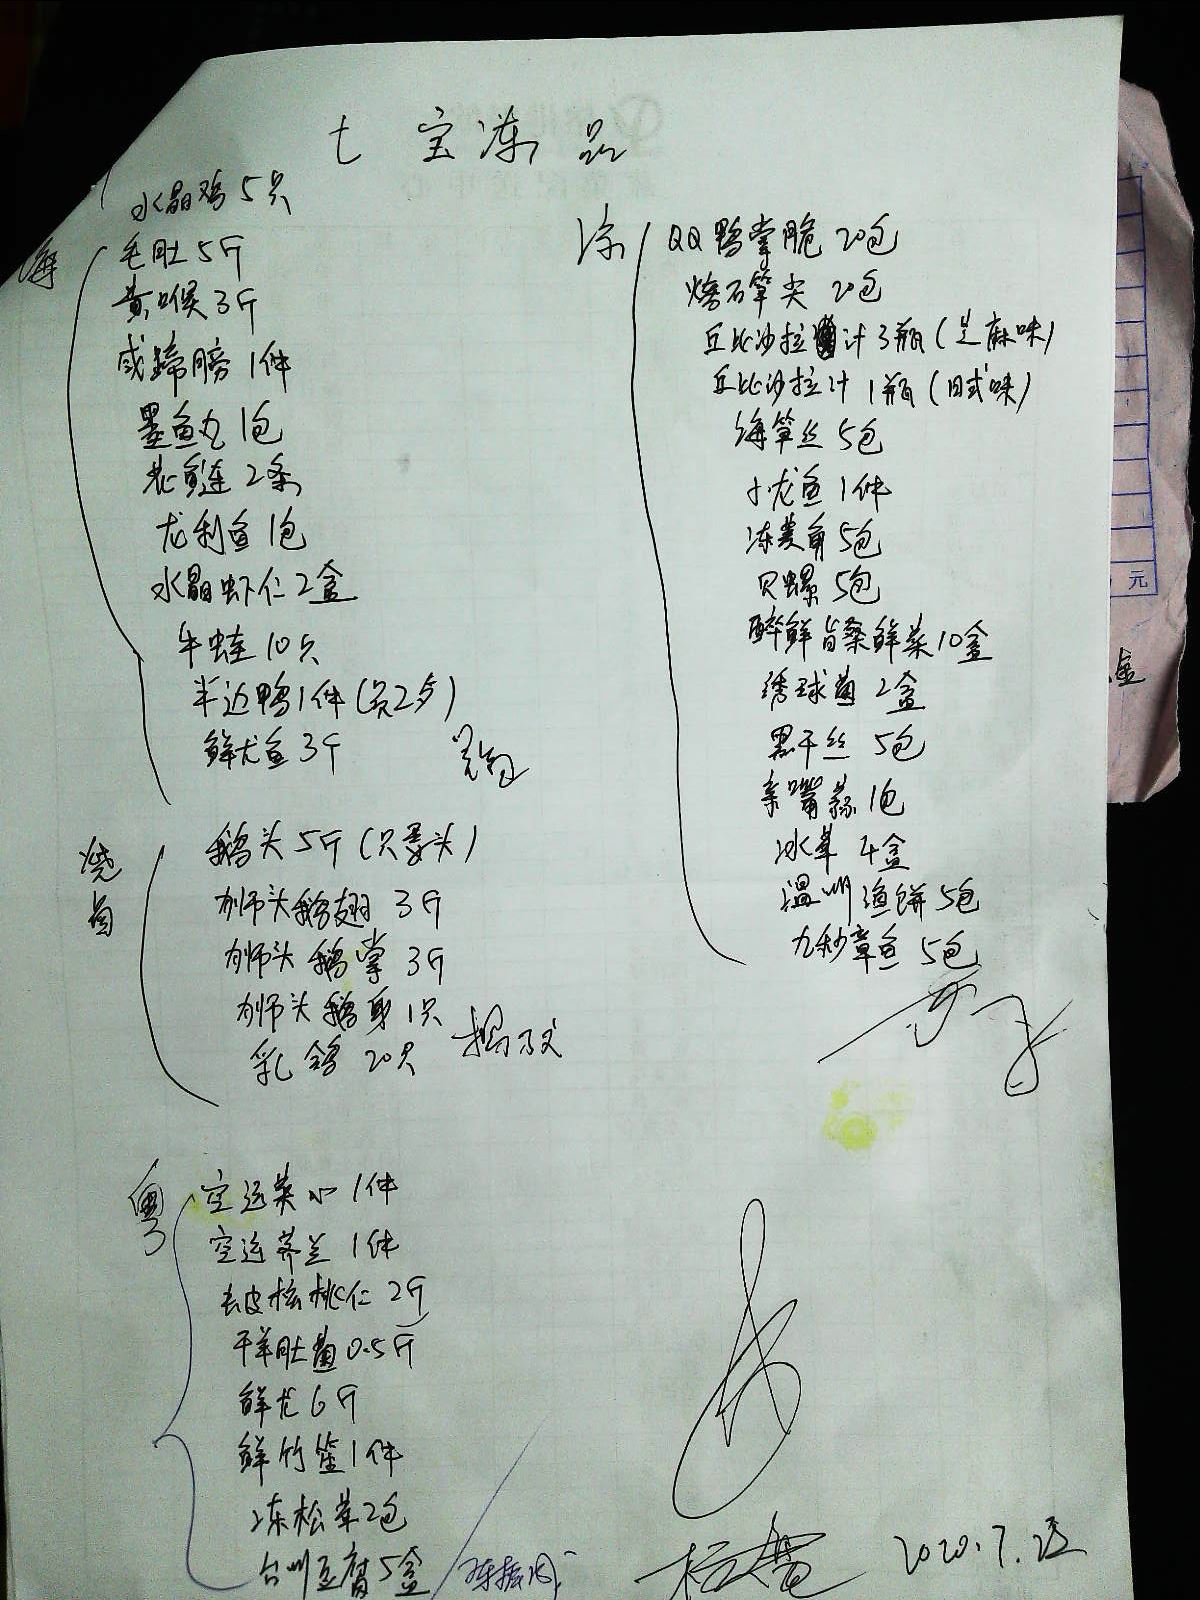 七宝冻品
水晶鸡 5只
海
毛肚 5斤
黄喉 3斤
咸蹄膀 1件
墨鱼丸 1包
花鲢 2条
龙利鱼 1包
水晶虾仁 2盒
牛蛙 10只
半边鸭 1件(只2只)
鲜尤鱼 3斤
烧卤
鹅头 5斤(只要头)
狮头鹅翅 3斤
狮头鹅掌 3斤
狮头鹅身 1只
乳鸽 20只
粤
空运菜心 1件
空运芥兰 1件
去皮核桃仁 2斤
干羊肚菌 0.5斤
鲜尤 6斤
鲜竹笙 1件
冻松茸 2包
台州豆腐 5盒
凉
QQ鸭掌脆 20包
烧石笔尖 20包
丘比沙拉汁 3瓶(芝麻味)
丘比沙拉汁 1瓶(日式味)
海笋丝 5包
小龙鱼 1件
冻菱角 5包
贝螺 5包
醉鲜旨桑鲜菜 10盒
绣球菌 2盒
黑干丝 5包
亲嘴蒜 1包
冰草 4盒
温州鱼饼 5包
九秒章鱼 5包
2020.7.25
元